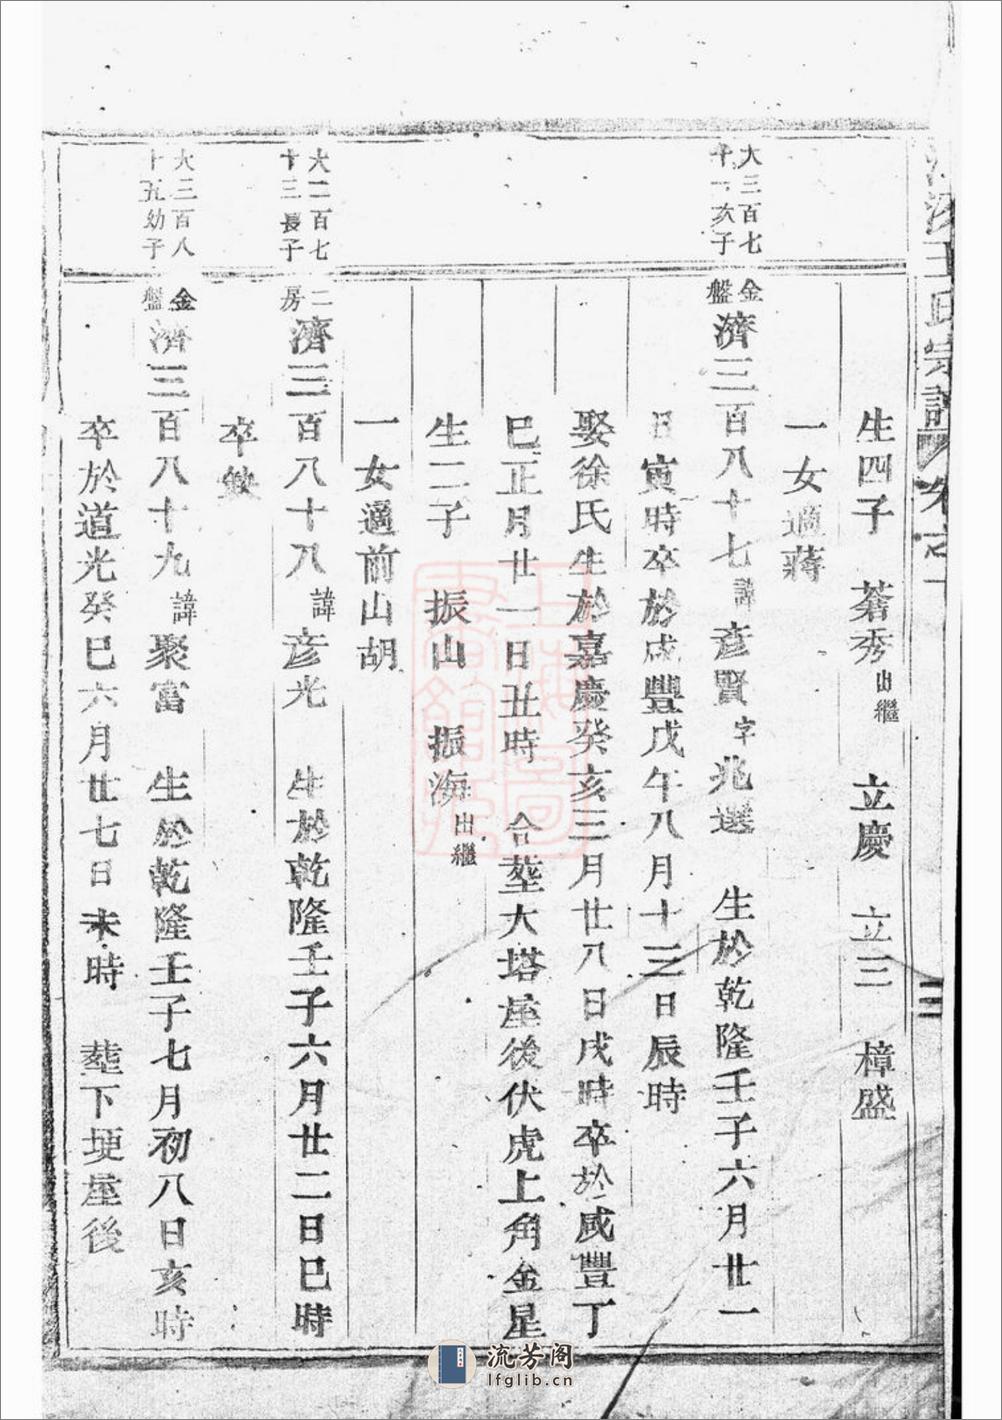 王氏宗譜 卷之
生四子 蒼秀出繼 立慶 立三 樟盛
一女適蔣
大三百七
十一次子
金盤 濟三百八十七諱彥賢字兆選 生於乾隆壬子六月廿一
日寅時卒於咸豐戊午八月十三日辰時
娶徐氏生於嘉慶癸亥三月廿八日戌時卒於咸豐丁
巳正月廿一日丑時 合塟大塔屋後伏虎上角金星
生二子 振山 振海出繼
一女適前山胡
大二百七
十三長子
二房 濟三百八十八諱彥光 生於乾隆壬子六月廿二日巳時
卒
大三百八
十五幼子
金盤 濟三百八十九諱聚富 生於乾隆壬子七月初八日亥時
卒於道光癸巳六月廿七日未時 塟下埂屋後
上海圖書館藏
流芳阁
lfglib.cn